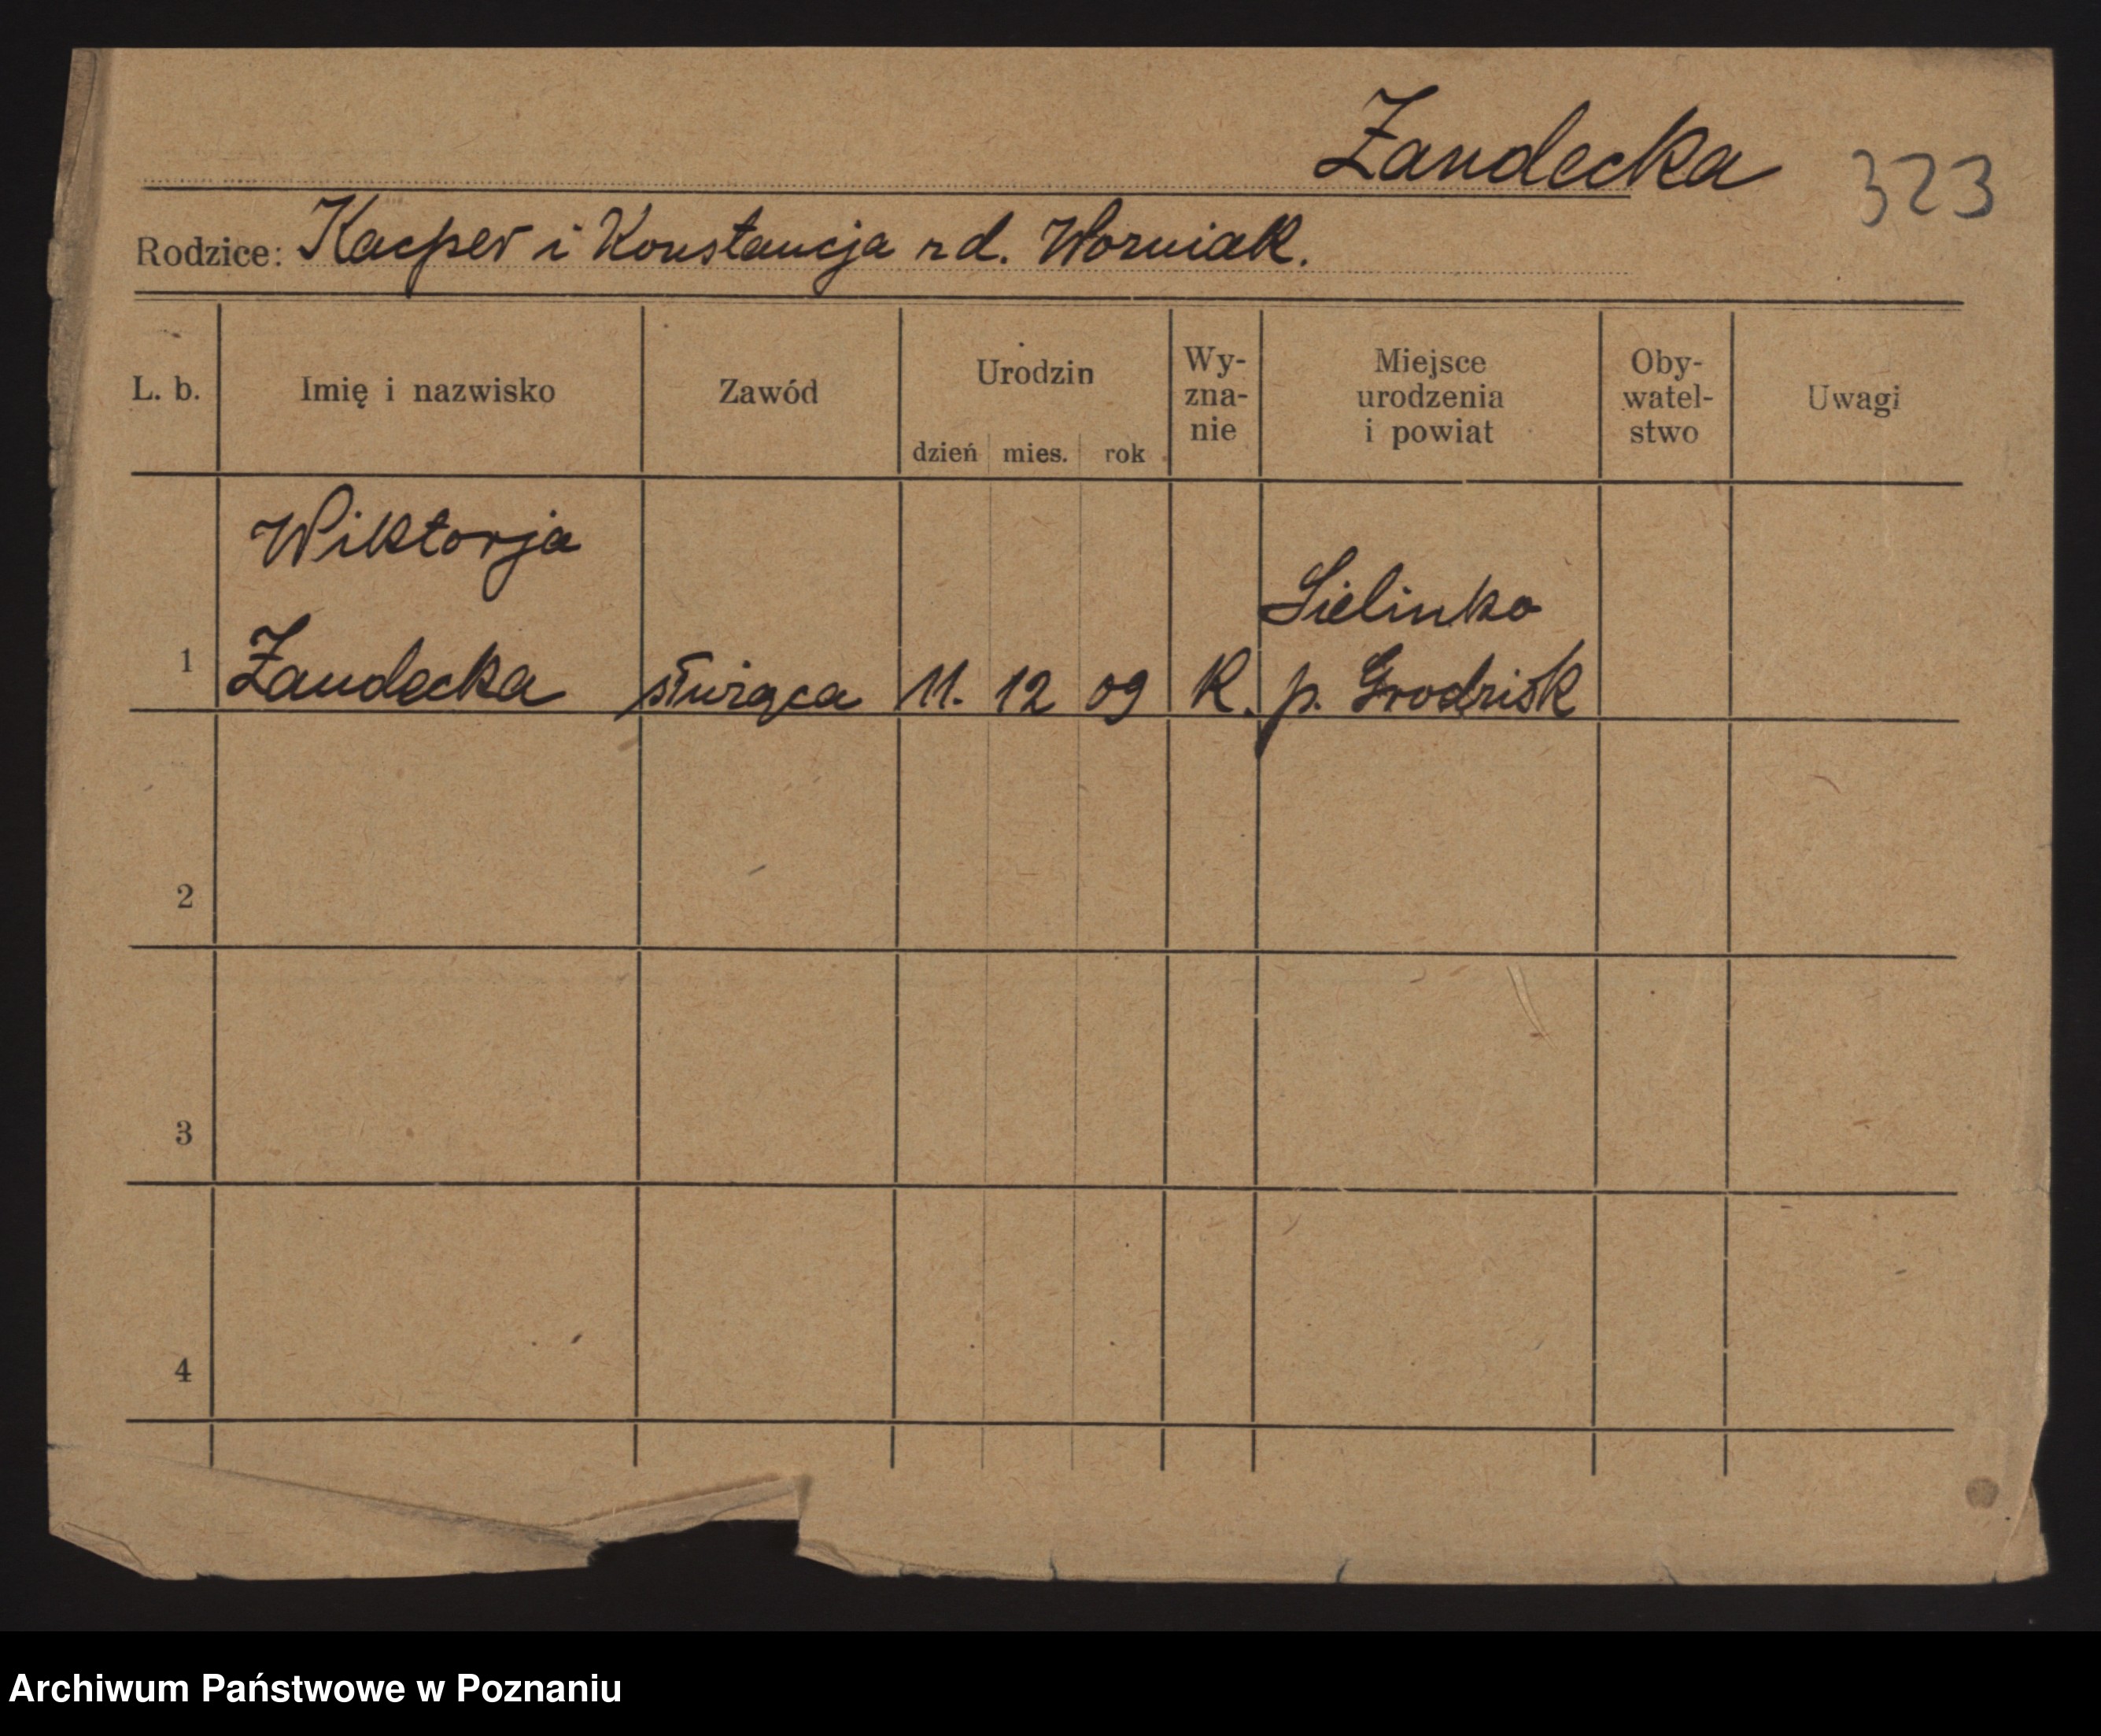 Żandecka
323
Rodzice: Kacper i Konstancja rd. Worniak.
L. b. Imię i nazwisko Zawód Urodzin dzień mies. rok Wy-zna-nie Miejsce urodzenia i powiat Oby-watel-stwo Uwagi
Wiktorja
Sielinko
1 Żandecka służąca 11. 12 09 K. p. Grodzisk
2
3
4
Archiwum Państwowe w Poznaniu